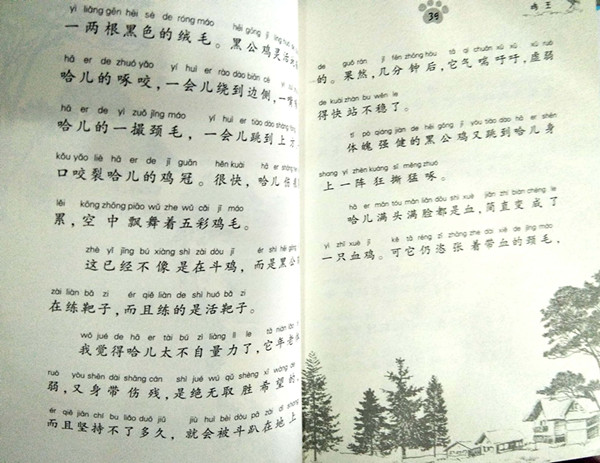 yì liǎng gēn hēi sè de róng máo hēi gōng jī
一两根黑色的绒毛。黑公鸡灵活
hā er de zhuó yǎo yí huì er rào dào biān cè
哈儿的啄咬，一会儿绕到边侧，一嘴
hā er de yì zuǒ jǐng máo yí huì er tiào dào shàng
哈儿的一撮颈毛，一会儿跳到上方
kǒu yǎo liè hā er de jī guān hěn kuài hā er
口咬裂哈儿的鸡冠。很快，哈儿伤
lěi kōng zhōng piāo wǔ zhe wǔ cǎi jī máo
累，空中飘舞着五彩鸡毛。
zhè yǐ jīng bú xiàng shì zài dòu jī ér shì hēi gōng
这已经不像是在斗鸡，而是黑公
zài liàn bǎ zi ér qiě liàn de shì huó bǎ zi
在练靶子，而且练的是活靶子。
wǒ jué de hā er tài bú zì liàng lì le tā nián lǎo
我觉得哈儿太不自量力了，它年老
ruò yòu shēn dài shāng cán shì jué wú qǔ shèng xī wàng de
弱，又身带伤残，是绝无取胜希望的，
ér qiě jiān chí bu liǎo duō jiǔ jiù huì bèi dòu pā zài dì shang
而且坚持不了多久，就会被斗趴在地上
39
鸡王
de guǒ rán jǐ fēn zhōng hòu tā qì chuǎn xū xū xū ruò
的。果然，几分钟后，它气喘吁吁，虚弱
de kuài zhàn bu wěn le
得快站不稳了。
tǐ pò qiáng jiàn de hēi gōng jī yòu tiào dào hā er shēn
体魄强健的黑公鸡又跳到哈儿身
shang yí zhèn kuáng sī měng zhuó
上一阵狂撕猛啄。
hā er mǎn tóu mǎn liǎn dōu shì xuè jiǎn zhí biàn chéng le
哈儿满头满脸都是血，简直变成了
yì zhī xuè jī kě tā réng zī zhāng zhe dài xiě de jǐng máo
一只血鸡。可它仍恣张着带血的颈毛，